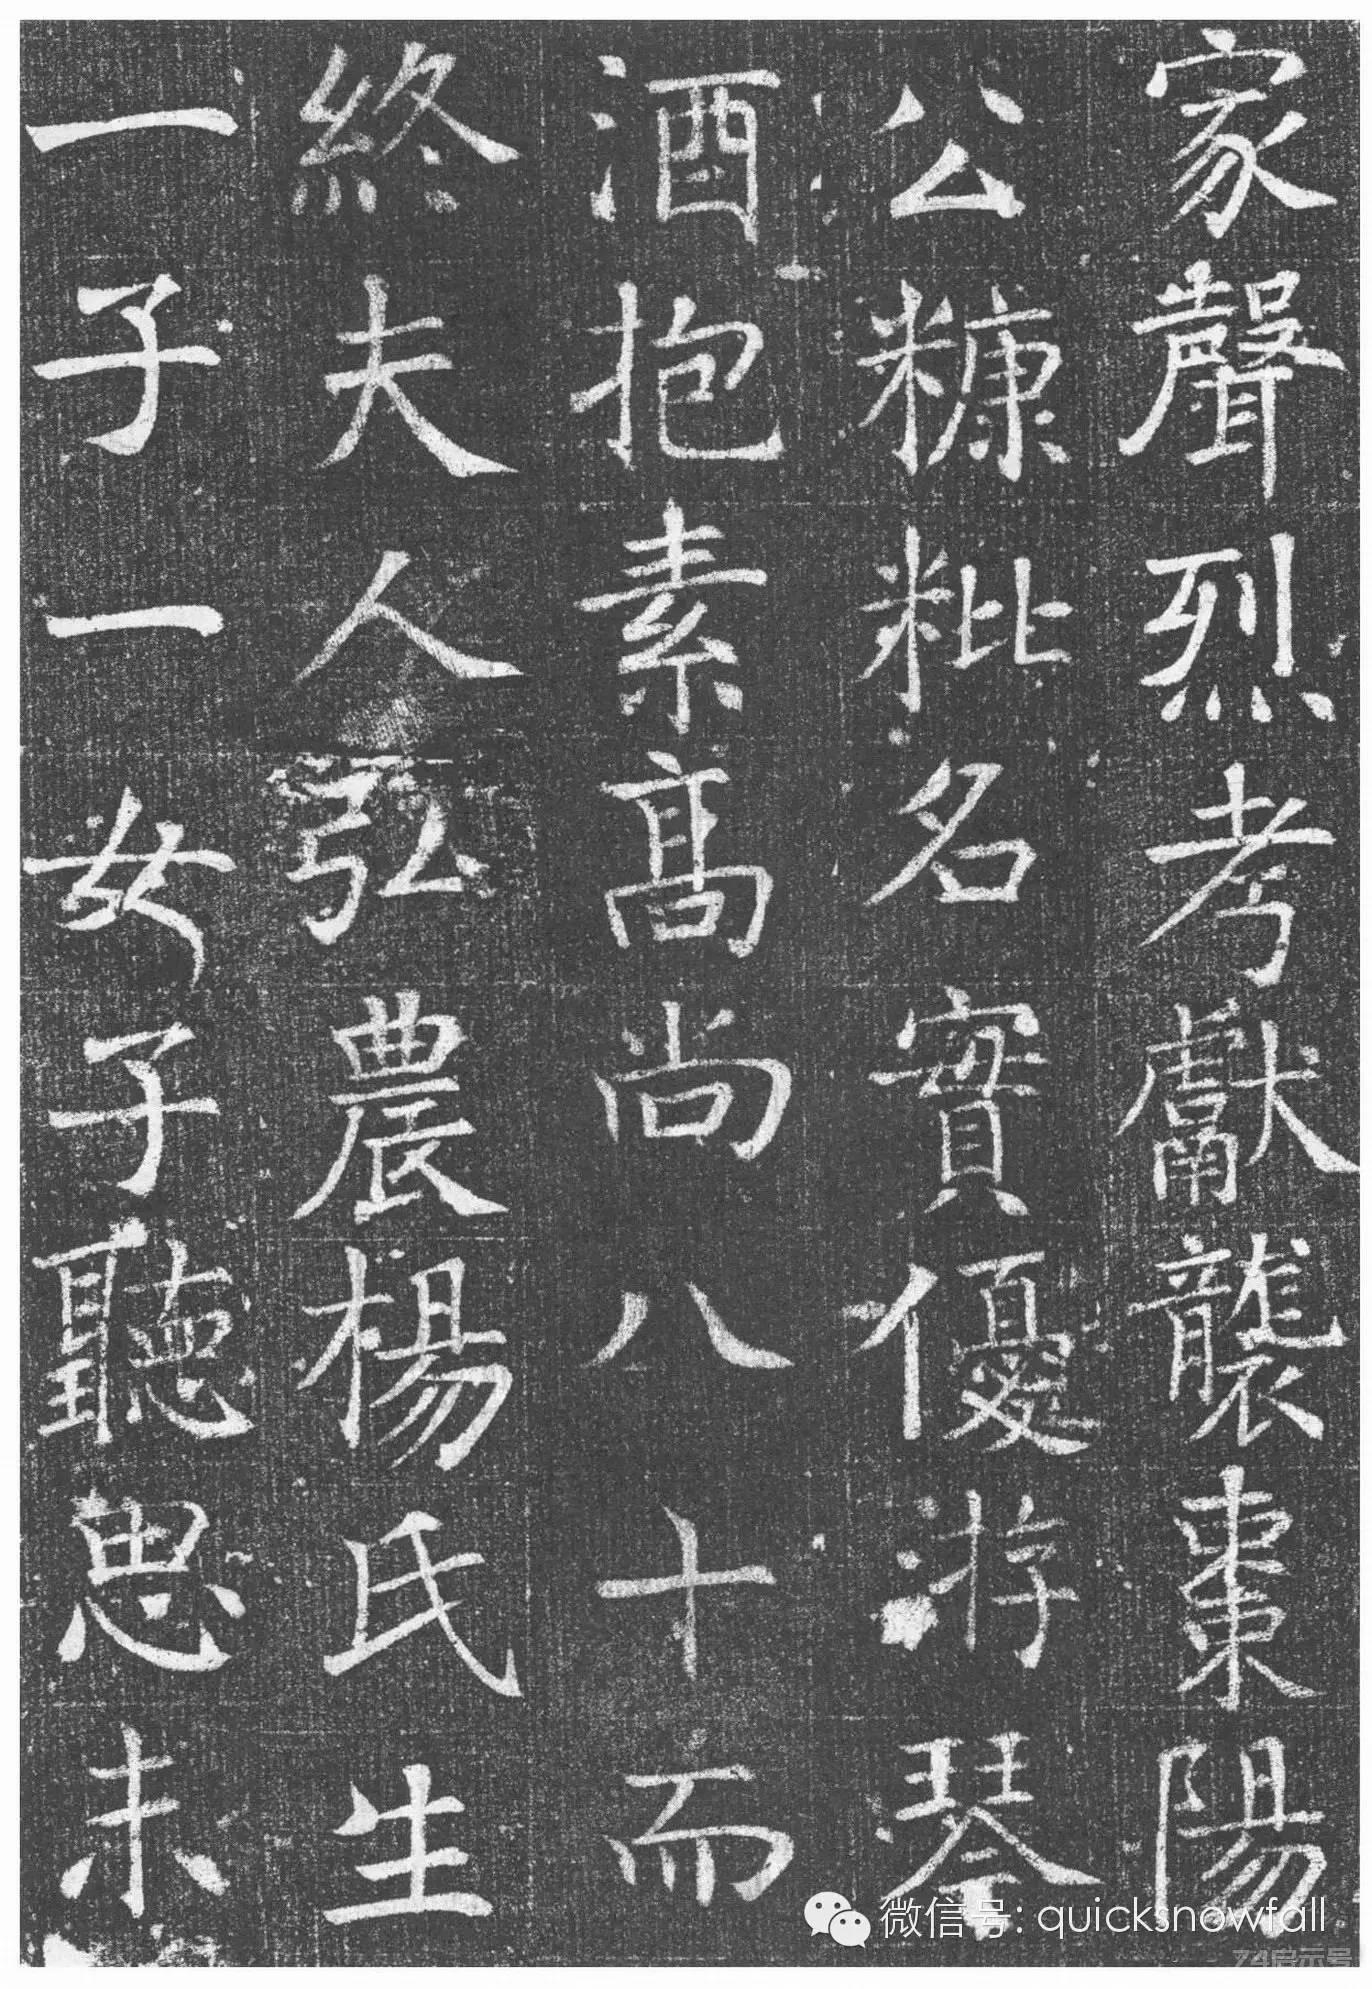 家聲烈考獻襲棗陽
公糠粃名實優游琴
酒抱素高尚八十而
終夫人弘農楊氏生
一子一女子聽思未
微信号: quicksnowfall
74启示号